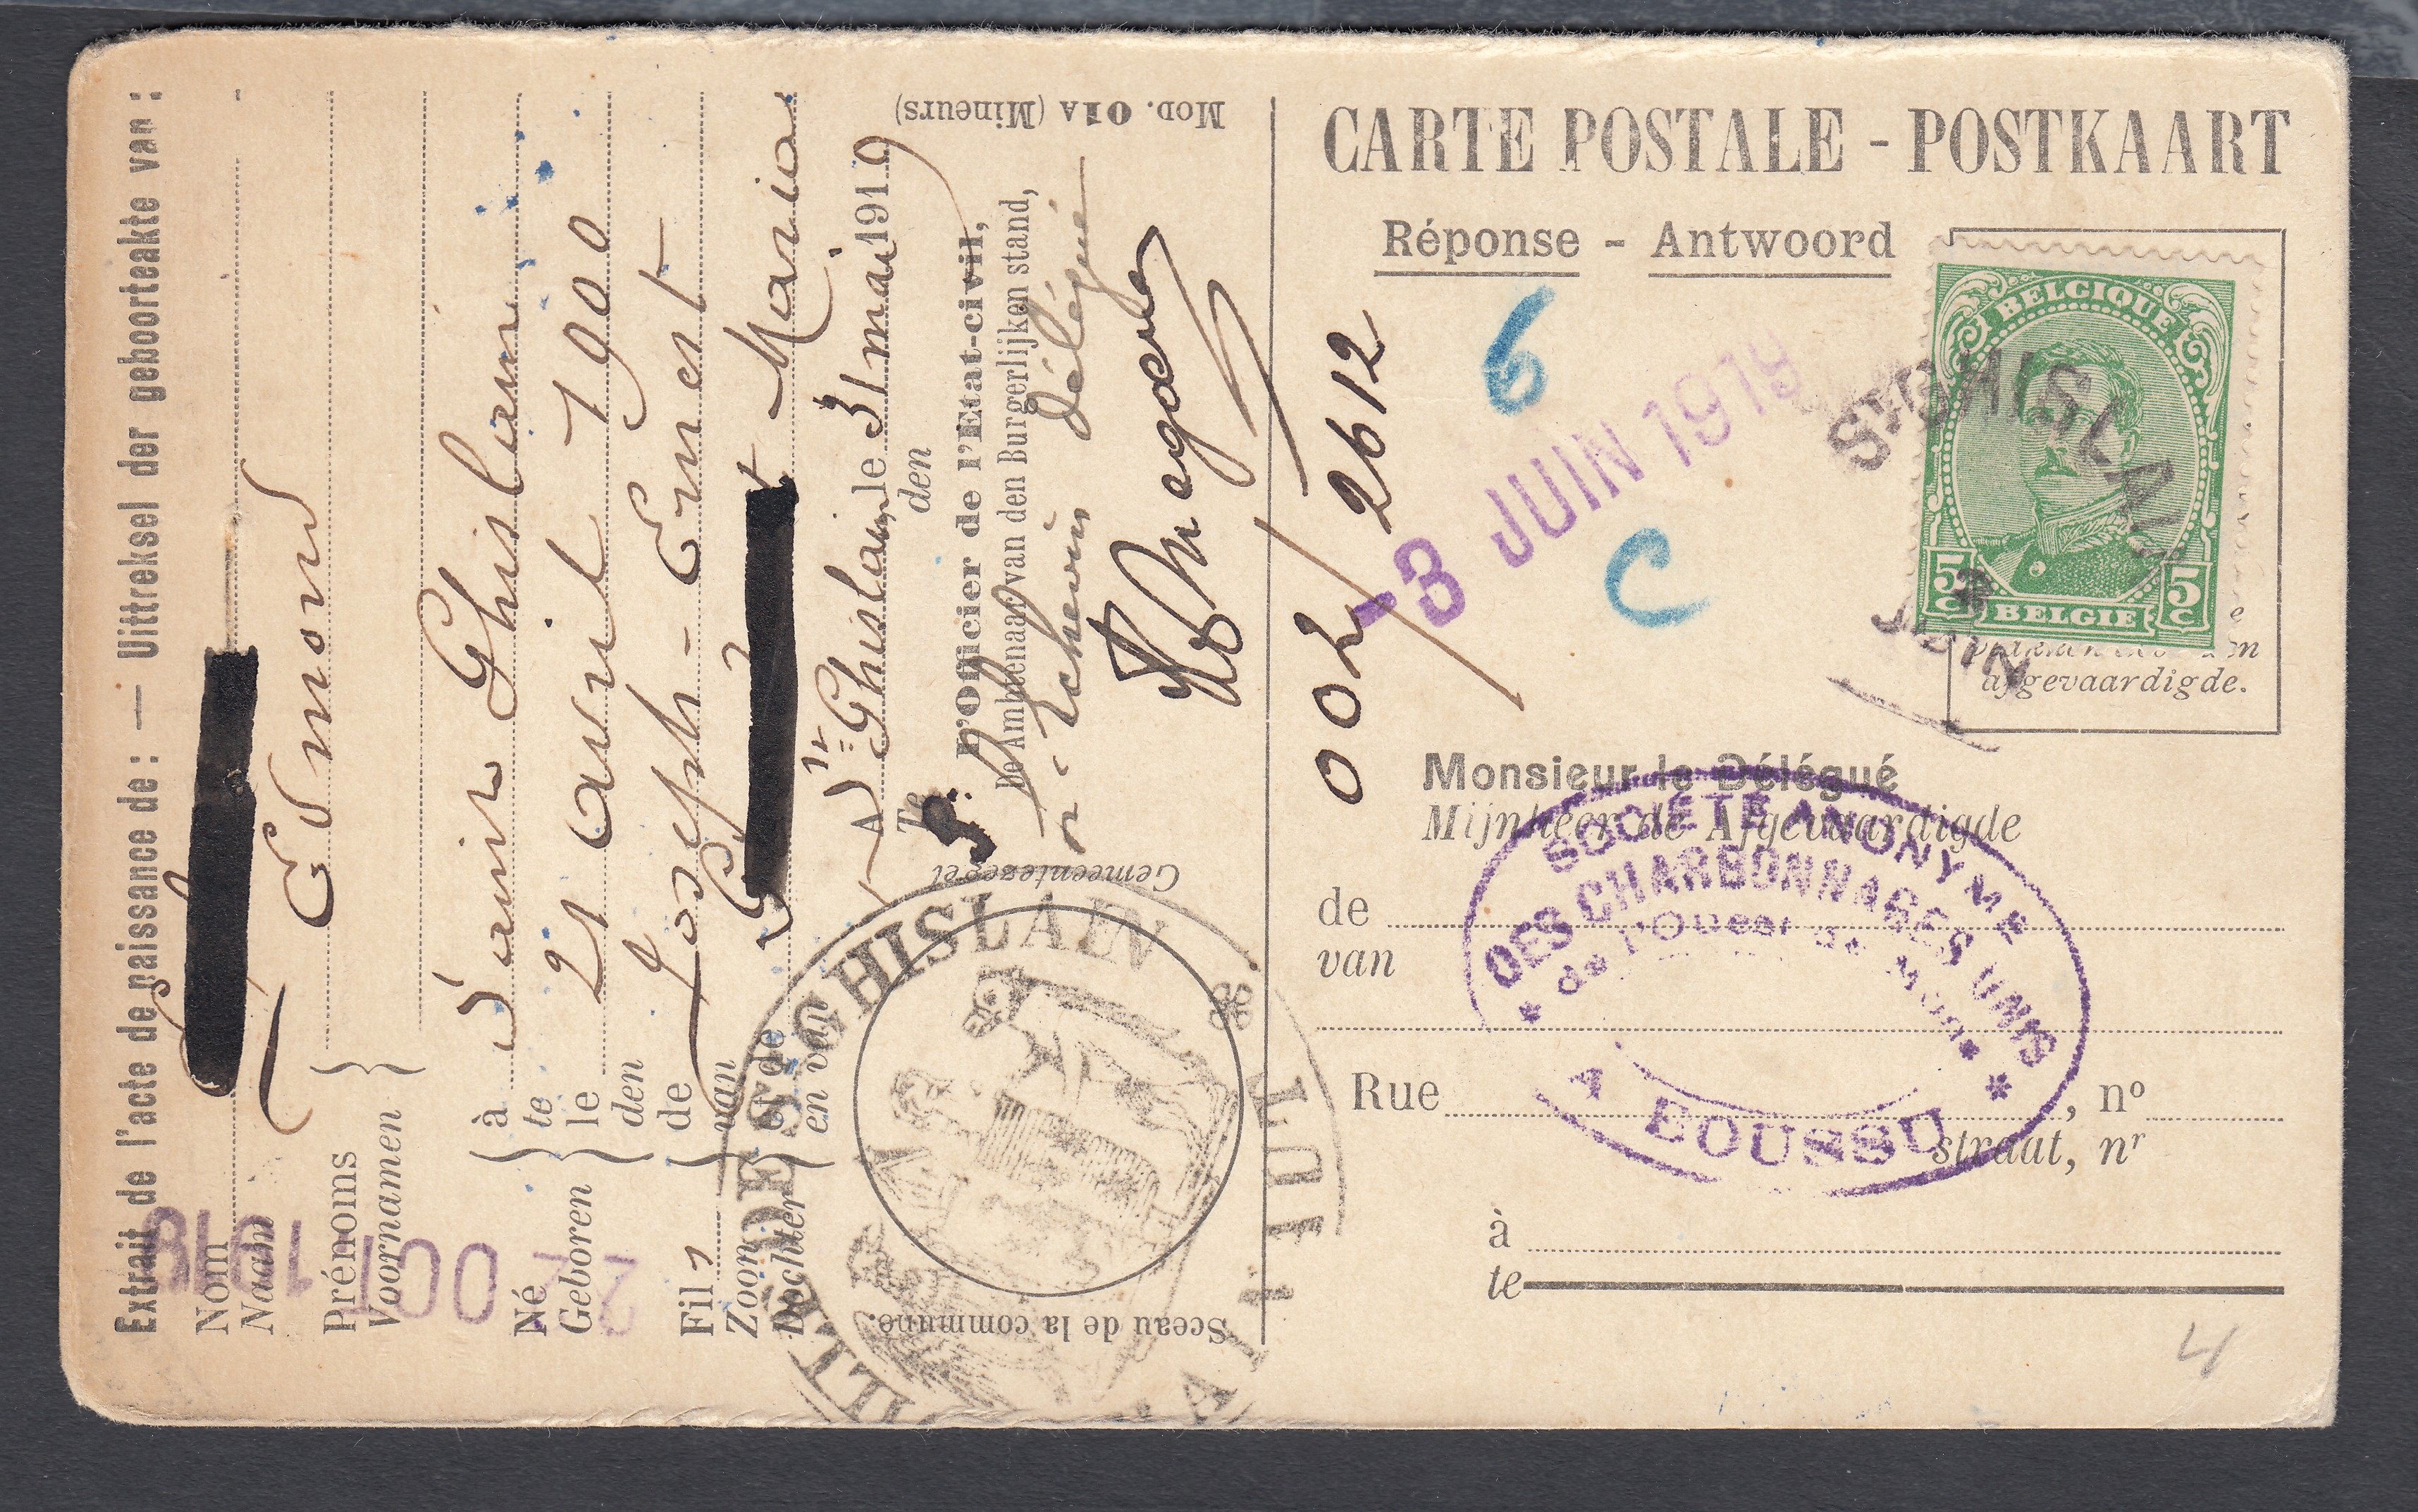 Extrait de l'acte de naissance de : — Uittreksel der geboorteakte van :
Nom
Naam
Prénoms
Voornamen
Edmond
Né
Geboren
à
te
Saint Ghislain
le
den
21 avril 1900
Fils
Zoon
Dochter
de
van
Joseph-Ernest
et de
en van
Maria
A St Ghislain, le 31 mai 1919
Te
den
L'Officier de l'Etat-civil,
De Ambtenaar van den Burgerlijken stand,
échevin délégué
Gemeentezegel
Sceau de la commune.
Mod. 01A (Mineurs)
DE ST GHISLAIN
22 OCT 1919
CARTE POSTALE - POSTKAART
Réponse - Antwoord
002/2612
6
-3 JUIN 1919
C
BELGIQUE
5 C
BELGIË
5 C
ST GHISLAIN
JUIN
afgevaardigde.
Monsieur le Délégué
Mijnheer de Afgevaardigde
de
van
SOCIÉTÉ ANONYME
DES CHARBONNAGES UNIS
* de l'Ouest de Mons *
A BOUSSU *
Rue , no
straat, nr
à
te
4